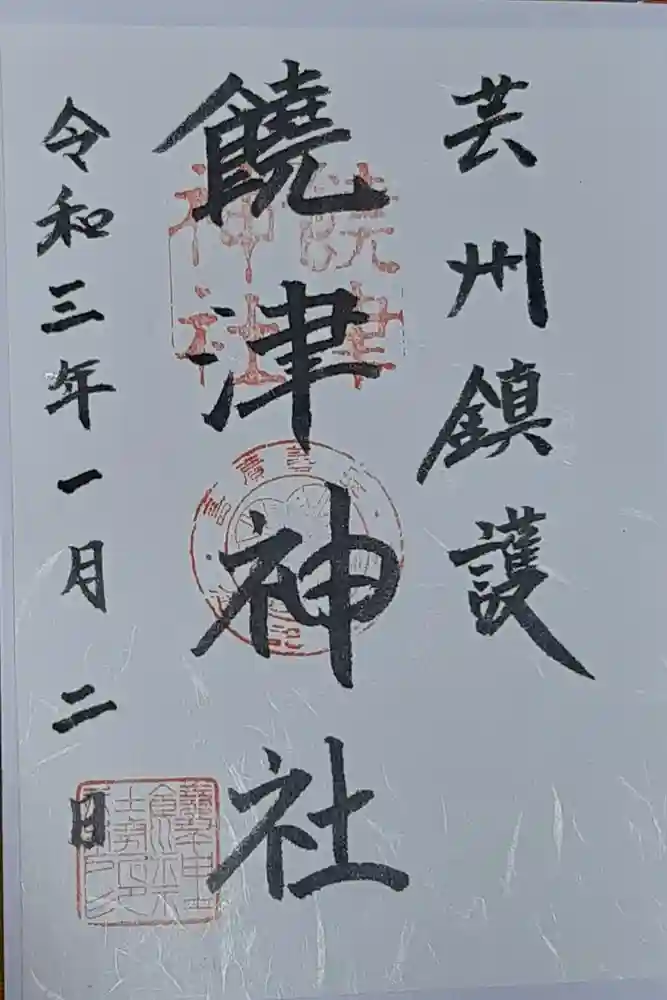 芸州鎮護
饒津神社
令和三年一月二日
饒津
神社